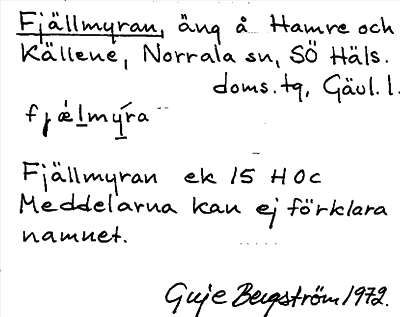 Fjällmyran, äng å Hamre och
Källene, Norrala sn, SÖ Häls.
doms.tg, Gävl.l.
fjǽlmýra
Fjällmyran ek 15 HOc
Meddelarna kan ej förklara
namnet.
Guje Bergström 1972.